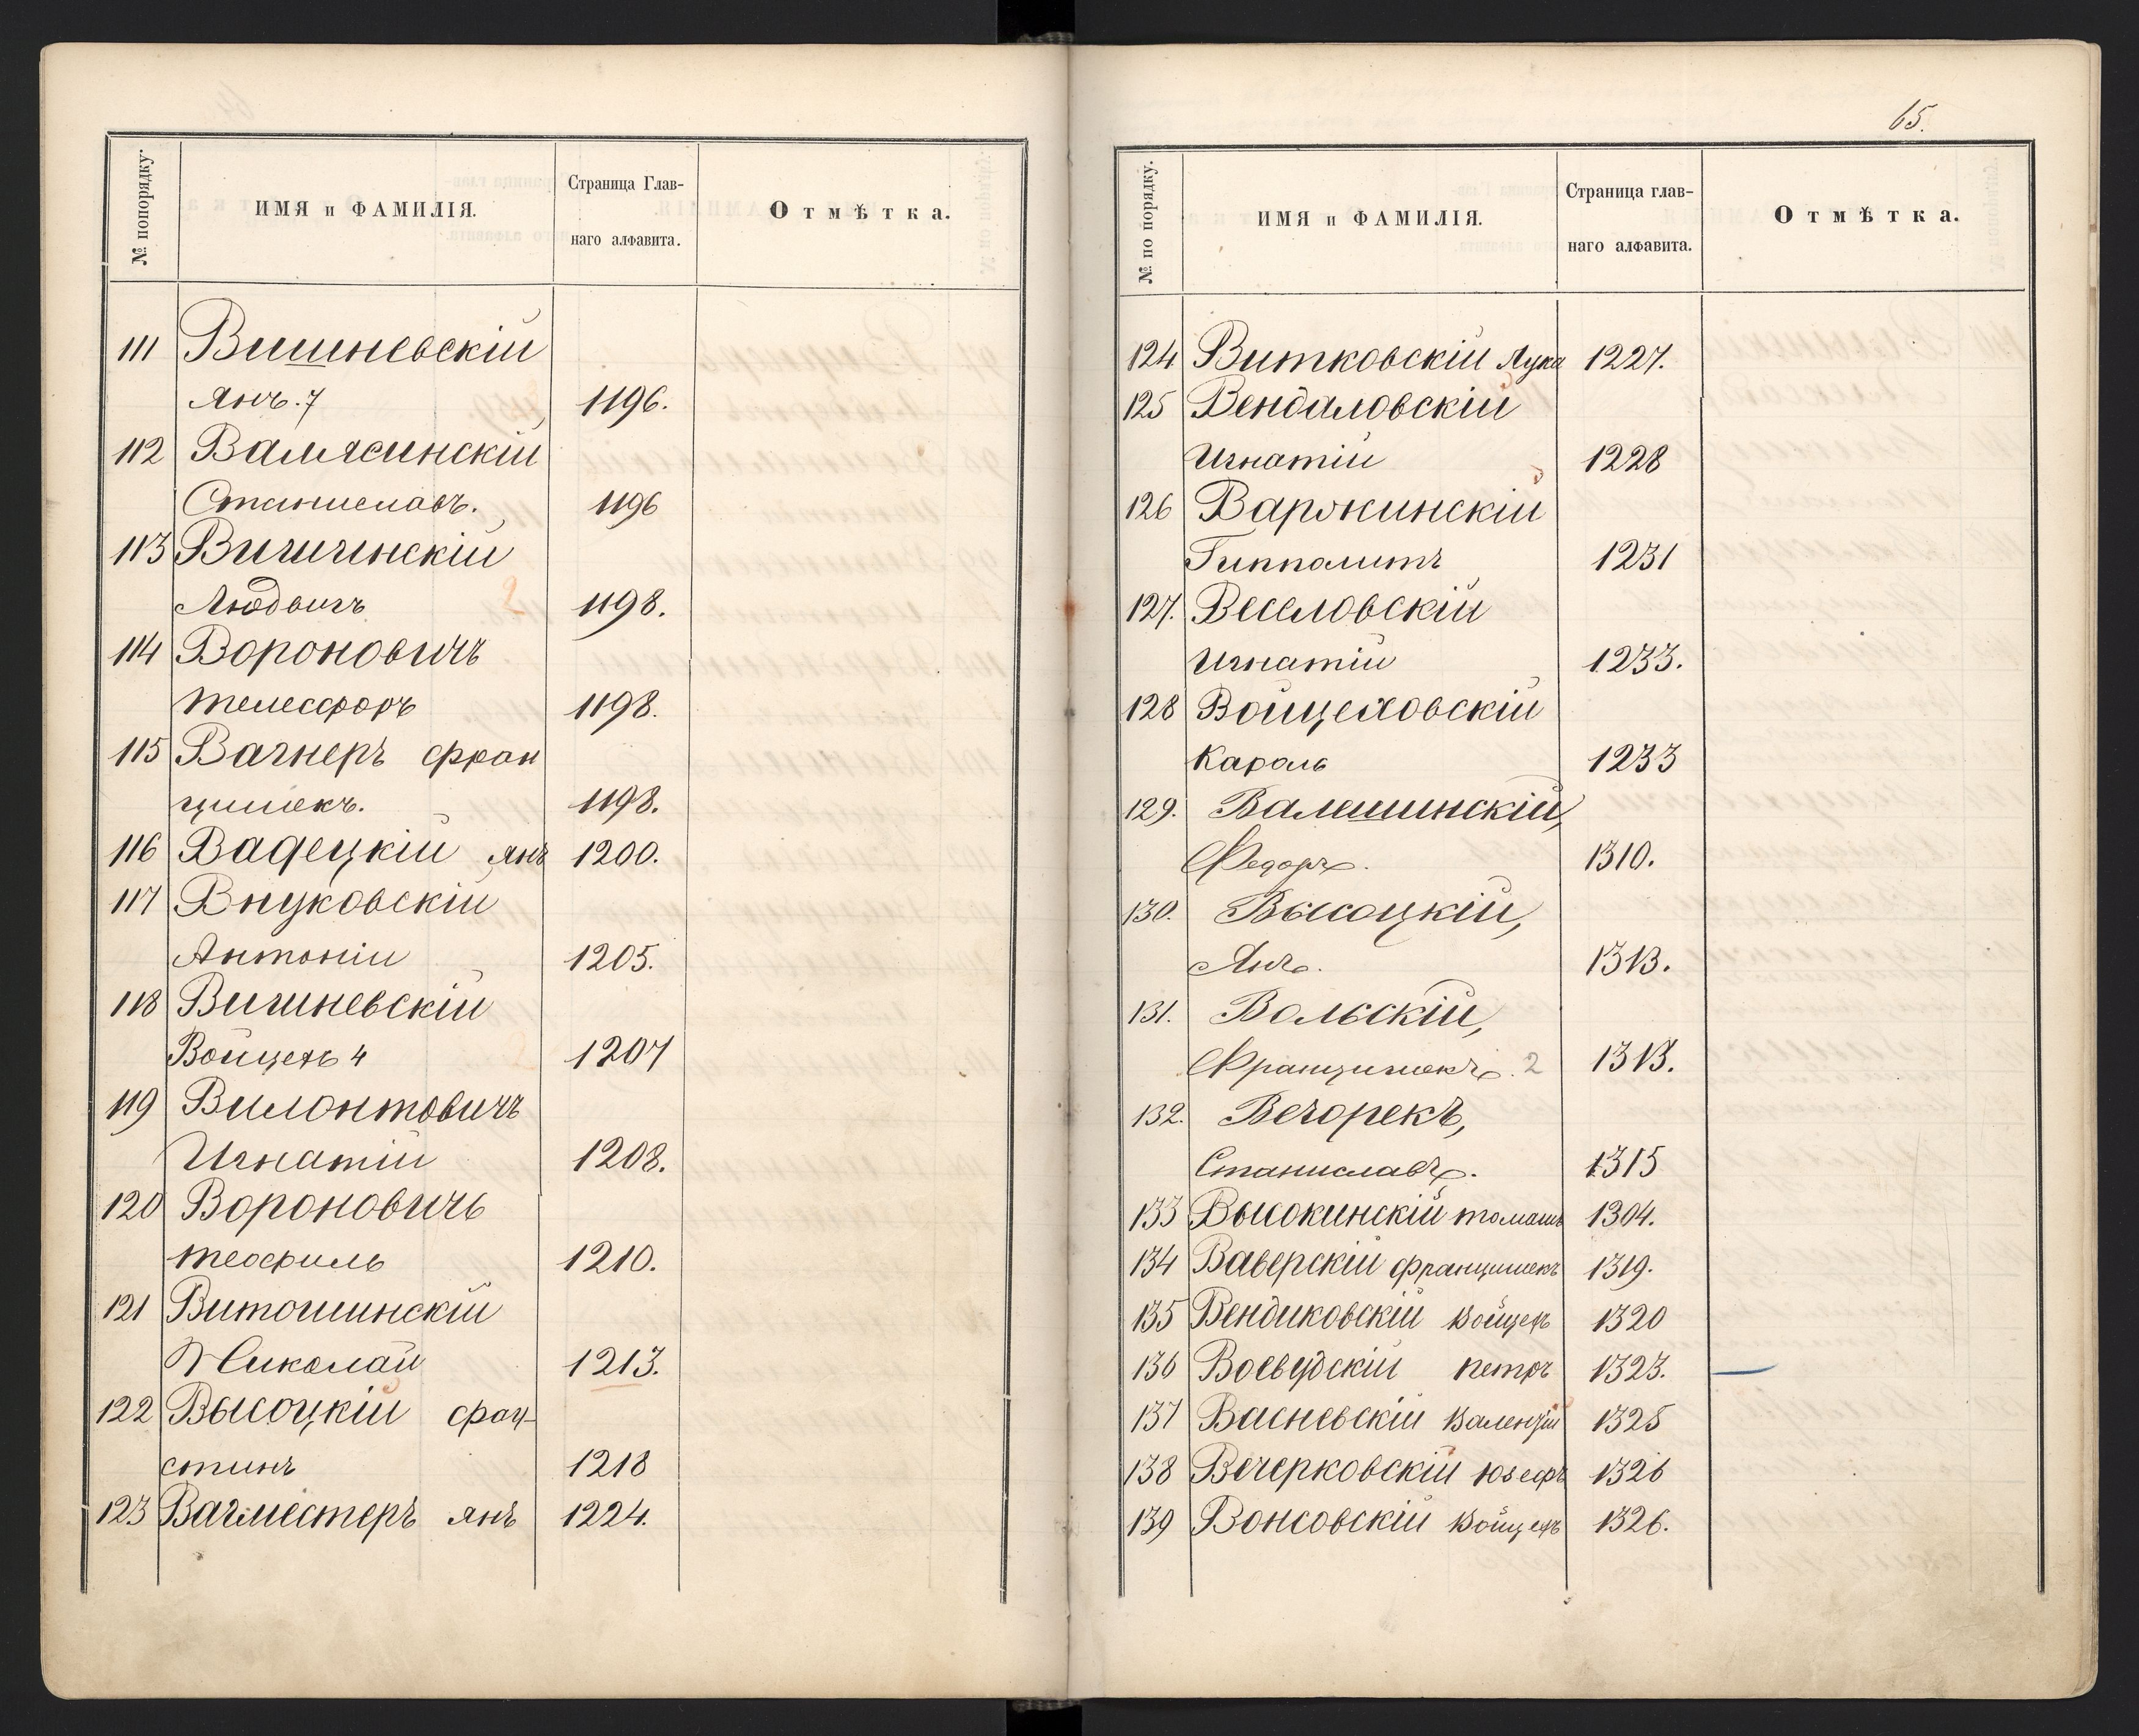 № попорядку.
ИМЯ и ФАМИЛІЯ.
Страница Глав-
наго алфавита.
Отмѣтка.
111 Вишневскій
Янъ. 7 1196.
112 Валясинскій
Станиславъ. 1196
113 Вишинскій
Людвигъ 2 1198.
114 Вороновичъ
Телесфоръ 1198.
115 Вагнеръ Фран
цишекъ. 1198.
116 Вадецкій Янъ 1200.
117 Внуковскій
Антоній 1205.
118 Вишневскій
Войцехъ 4 1207
119 Вилонтовичъ
Игнатій 1208.
120 Вороновичъ
Теофиль 1210.
121 Витошинскій
Николай 1213.
122 Высоцкій Фау-
стинъ 1218
123 Вагместеръ Янъ 1224.
65.
№ по порядку.
ИМЯ и ФАМИЛІЯ.
Страница глав-
наго алфавита.
Отмѣтка.
124. Витковскій Лука 1227.
125 Вендаловскій
Игнатій 1228
126 Варжинскій
Гипполитъ 1231
127. Веселовскій
Игнатій 1233.
128 Войцеховскій
Кароль 1233
129. Валешинскій,
Федоръ. 1310.
130. Высоцкій,
Янъ. 1313.
131. Вольскій,
Францишекъ. 2 1313.
132. Вечорекъ,
Станиславъ. 1315
133 Высокинскій Томашъ 1304.
134 Ваверскій Францишекъ 1319.
135 Вендиковскій Войцехъ 1320
136 Петръ 1323.
137 Васневскій Валентій 1325
138 Вечерковскій Юзефъ 1326
139 Вонсовскій Войцехъ 1326.